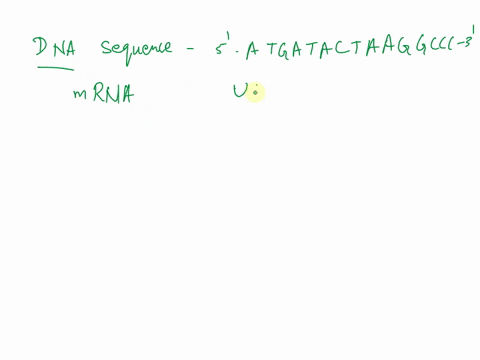 DNA sequence - 5'-ATGATACTAAGGCCC-3'
mRNA U